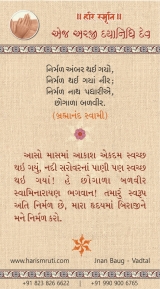 ॥ હરિ સ્મૃતિ ॥
એજ અરજી દયાનિધિ દેવ
નિર્મળ અંબર થઈ ગયો,
નિર્મળ થઈ ગયાં નીર;
નિર્મળ નાથ પધારીએ,
છોગાળા બળવીર.
(બ્રહ્માનંદ સ્વામી)
આસો માસમાં આકાશ એકદમ સ્વચ્છ
થઈ ગયું, નદી સરોવરનાં પાણી પણ સ્વચ્છ
થઈ ગયાં! હે છોગાળા બળવીર
સ્વામિનારાયણ ભગવાન! તમારું સ્વરૂપ
અતિ નિર્મળ છે, મારા હૃદયમાં બિરાજીને
મને નિર્મળ કરો.
www.harismruti.com
Jnan Baug - Vadtal
+91 823 826 6622
+91 990 900 6765